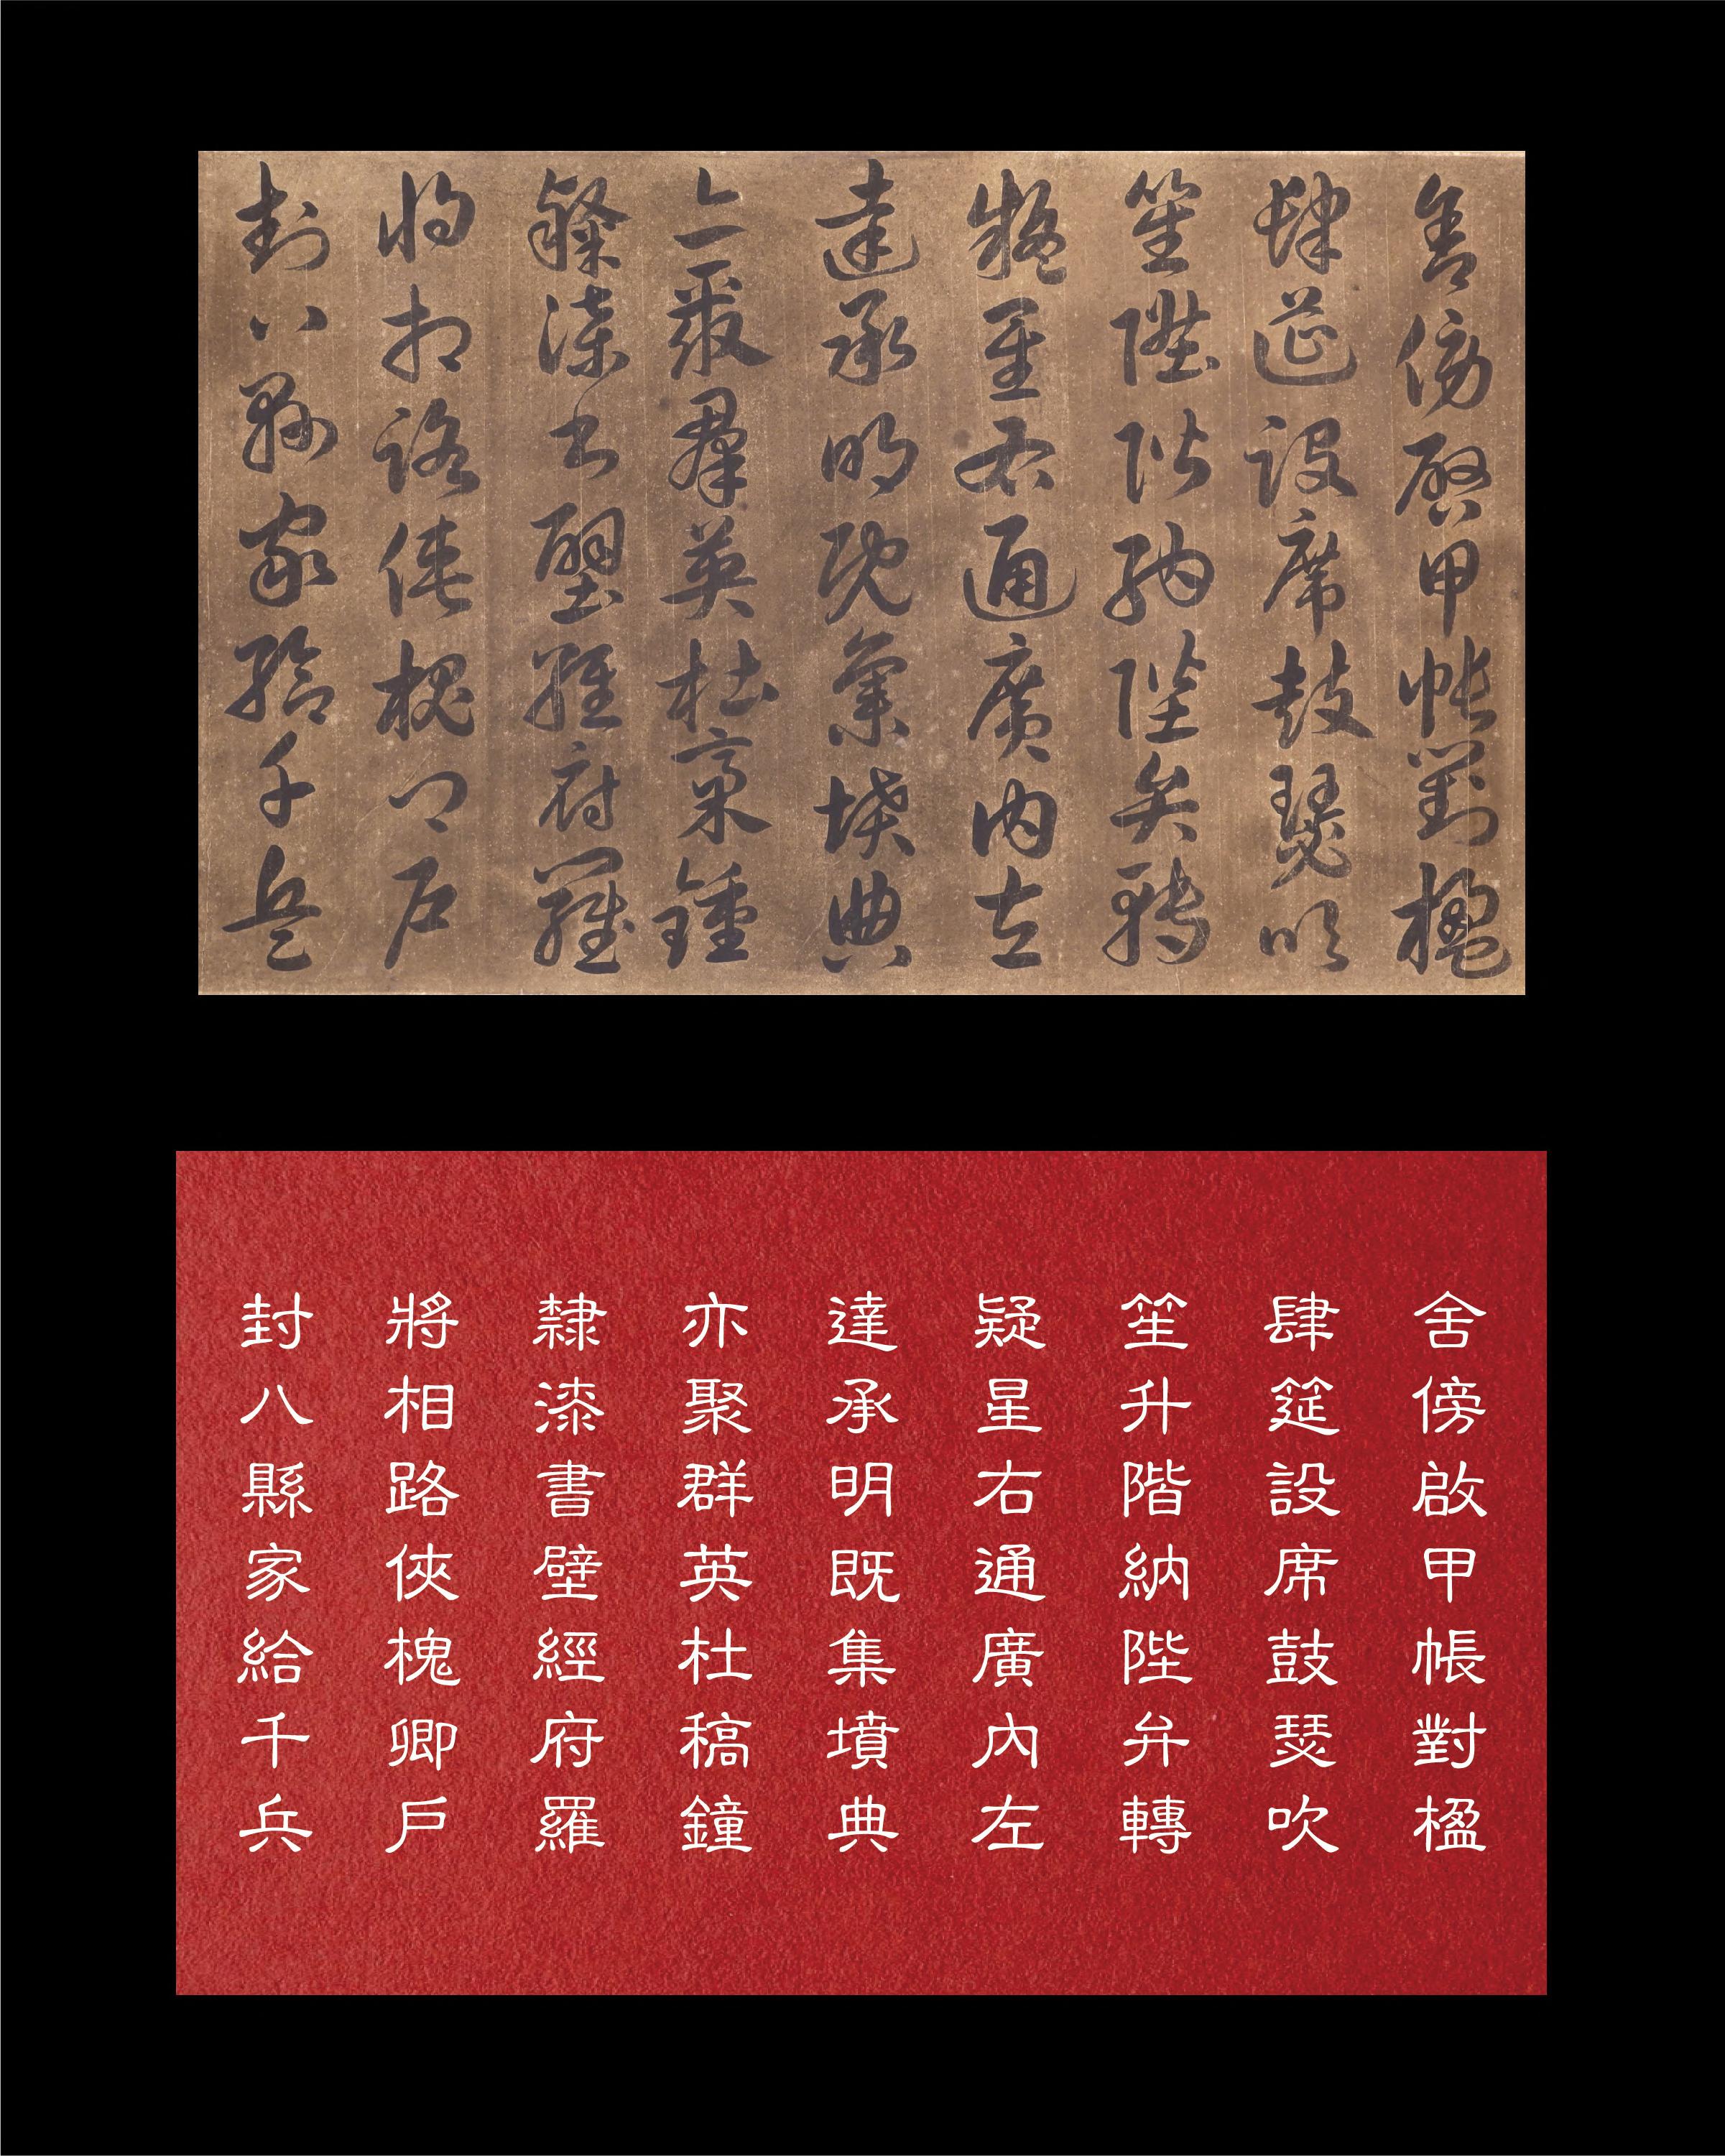 舍傍啟甲帳對楹
肆筵設席鼓瑟吹
笙升階納陛弁轉
疑星右通廣內左
達承明既集墳典
亦聚群英杜稿鍾
隸漆書壁經府羅
將相路俠槐卿戶
封八縣家給千兵
舍傍啟甲帳對楹
肆筵設席鼓瑟吹
笙升階納陛弁轉
疑星右通廣內左
達承明既集墳典
亦聚群英杜稿鐘
隸漆書壁經府羅
將相路俠槐卿戶
封八縣家給千兵